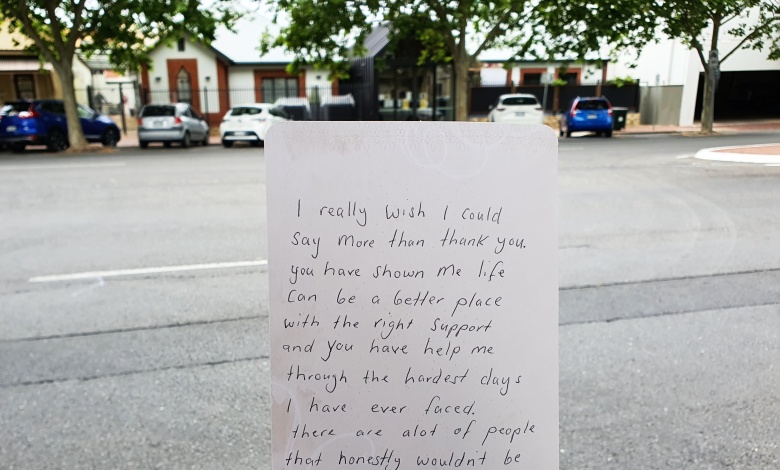 I really wish I could
say more than thank you.
you have shown me life
can be a better place
with the right support
and you have help me
through the hardest days
I have ever faced.
there are alot of people
that honestly wouldn't be